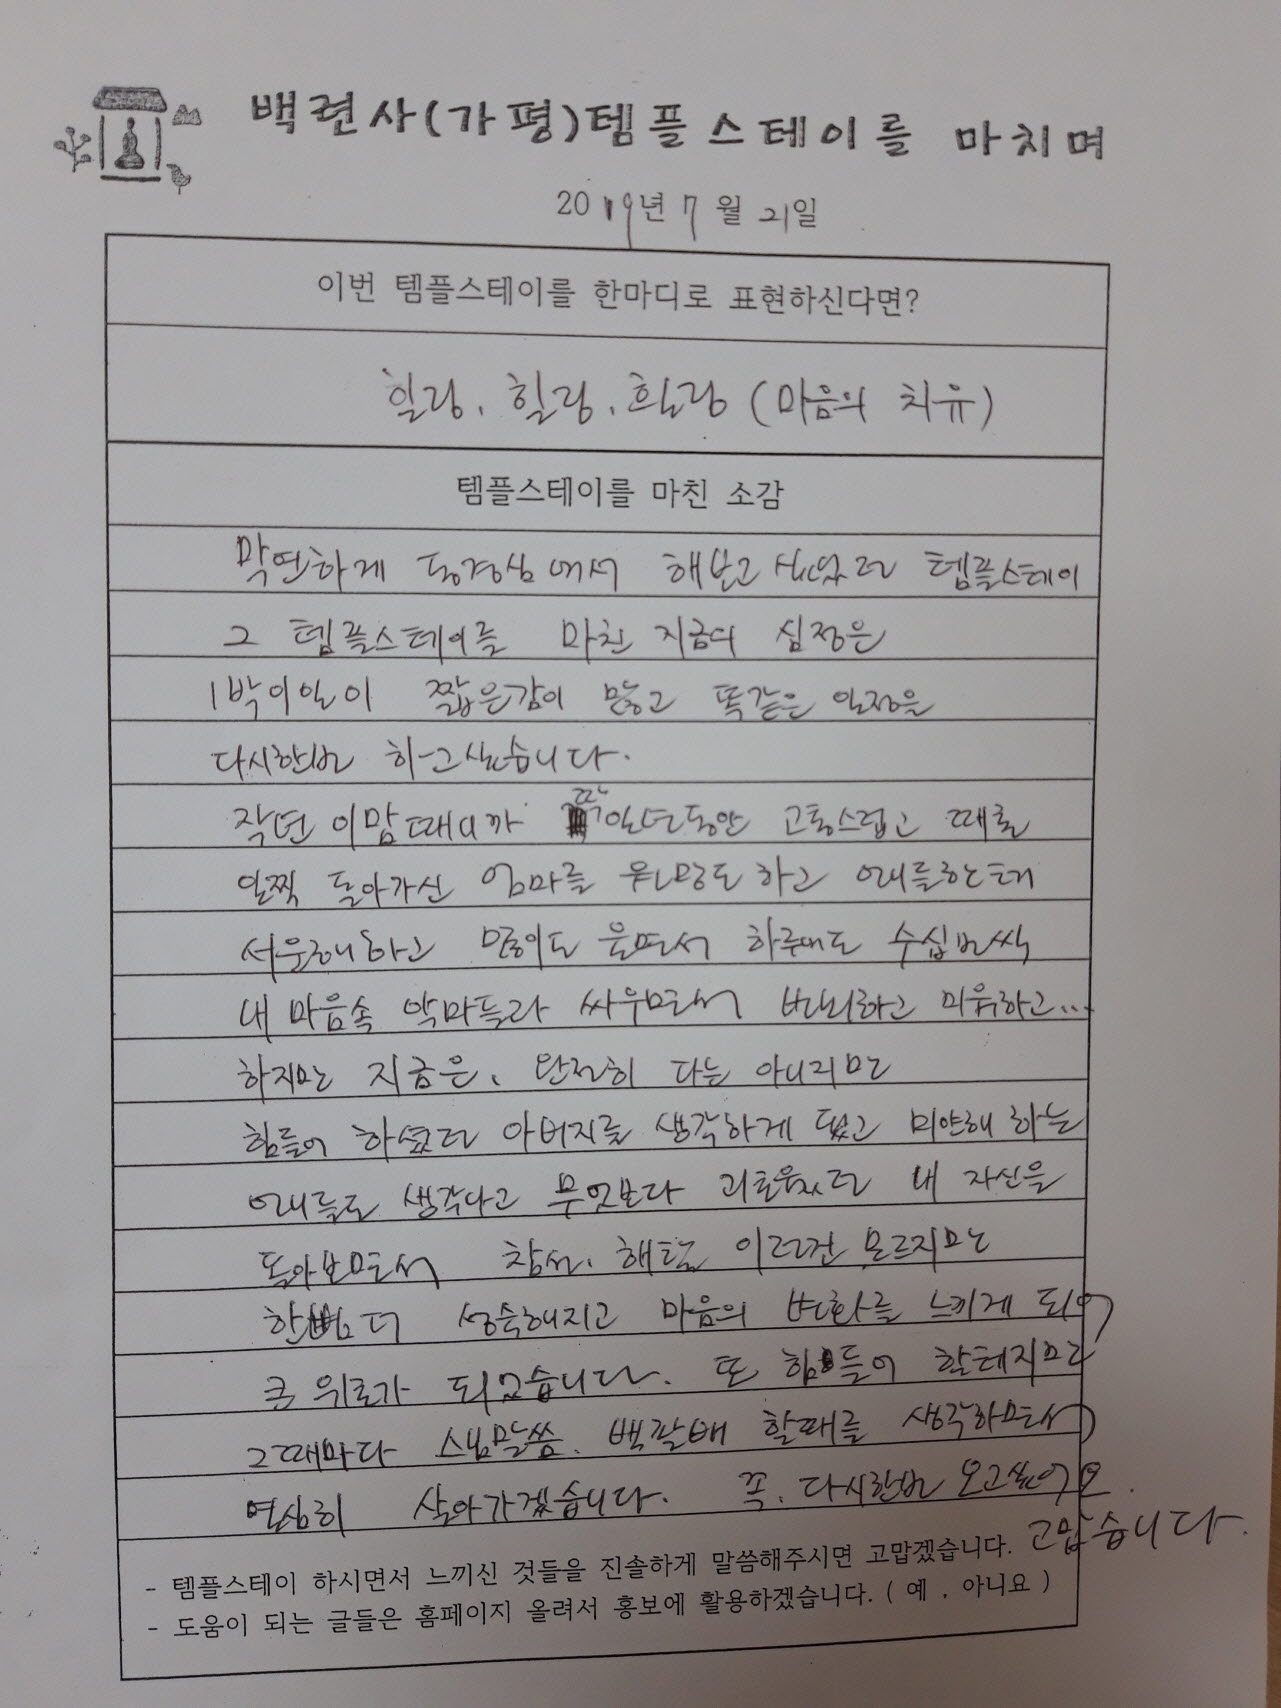 백련사(가평)템플스테이를 마치며
2019년 7월 21일
이번 템플스테이를 한마디로 표현하신다면?
힐링, 힐링, 힐링 (마음의 치유)
템플스테이를 마친 소감
막연하게 동경심에서 해보고 싶었던 템플스테이
그 템플스테이를 마친 지금의 심정은
1박이일이 짧은감이 많고 똑같은 일정을
다시한번 하고싶습니다.
작년 이맘때니까 딱 일년동안 고통스럽고 때론
일찍 돌아가신 엄마를 원망도 하고 애들한테
서운해하고 많이도 울면서 하루에도 수십번씩
내 마음속 악마들과 싸우면서 번뇌하고 미워하고...
하지만 지금은, 완전히 다는 아니지만
힘들어 하셨던 아버지를 생각하게 됐고 미안해 하는
애들도 생각나고 무엇보다 괴로웠던 내 자신을
돌아보면서 참선, 해탈 이런건 모르지만
한뼘 더 성숙해지고 마음의 변화를 느끼게 되어
큰 위로가 되었습니다. 또 힘들어 할테지만
그때마다 스님말씀, 백팔배 할때를 생각하면서
열심히 살아가겠습니다. 꼭, 다시한번 오고싶어요.
고맙습니다.
- 템플스테이 하시면서 느끼신 것들을 진솔하게 말씀해주시면 고맙겠습니다.
- 도움이 되는 글들은 홈페이지 올려서 홍보에 활용하겠습니다. ( 예 , 아니요 )